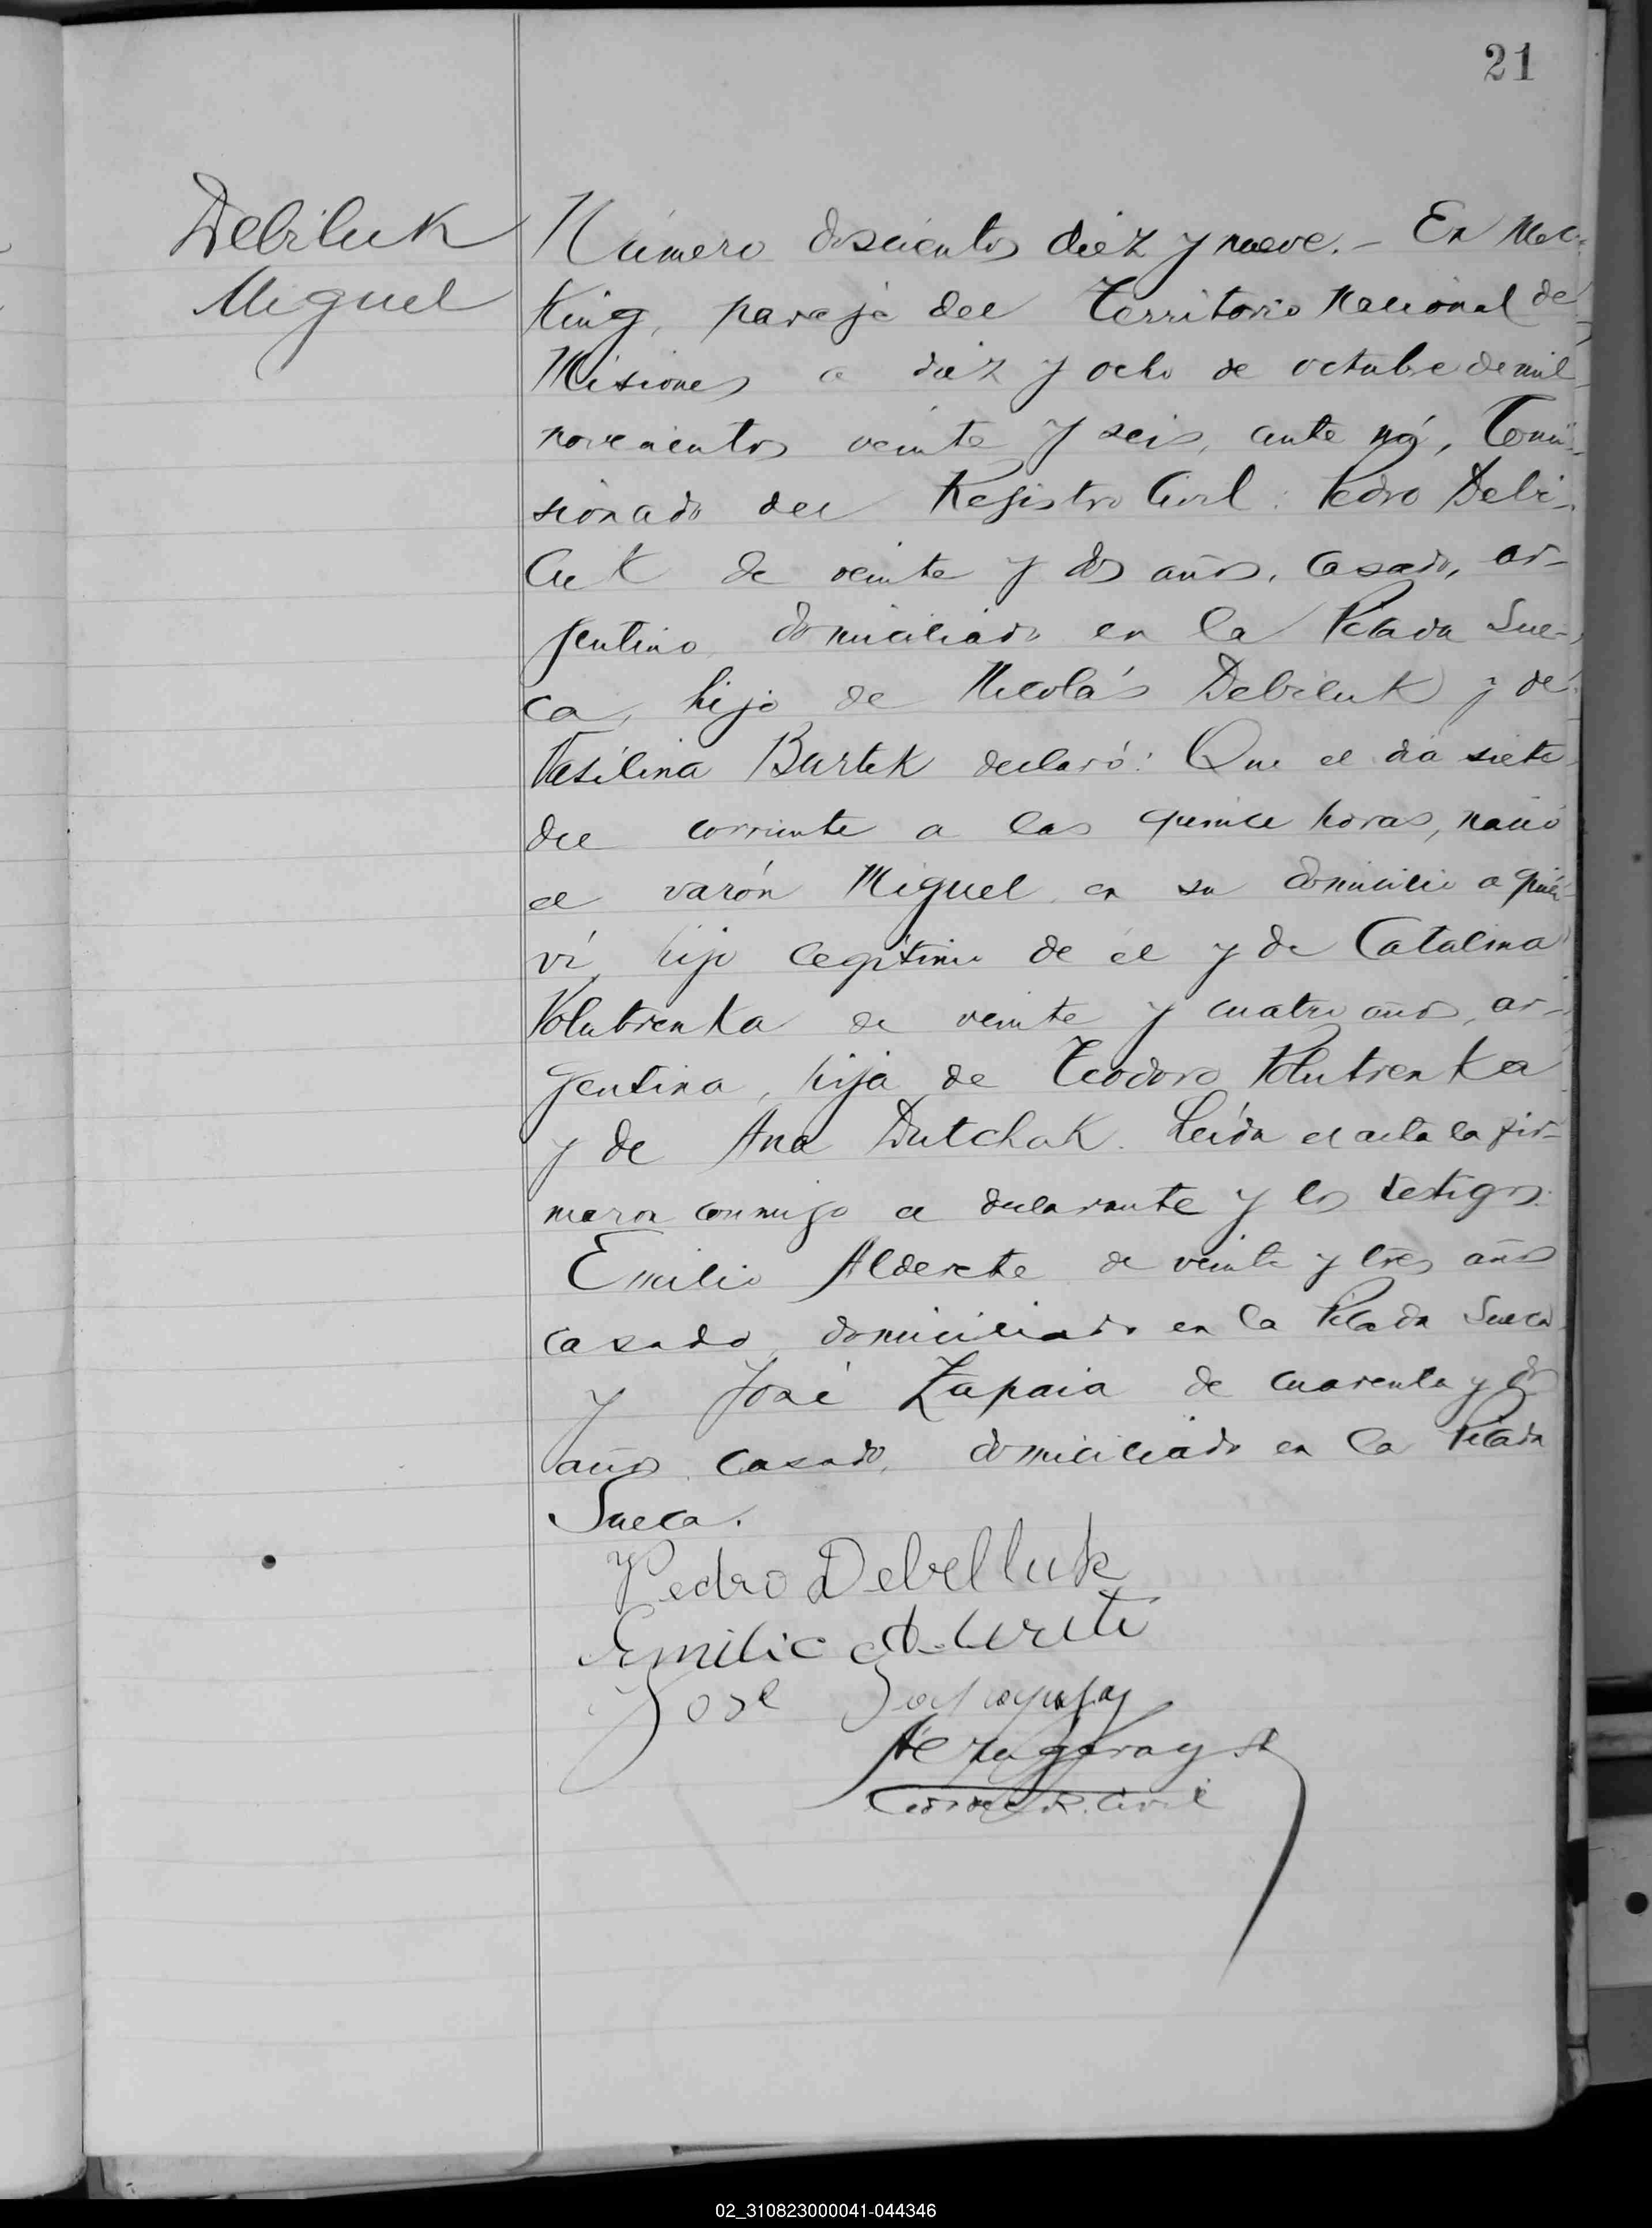 21
Debiluk
Miguel
Número doscientos diez y nueve. - En Mec-
King, paraje del Territorio Nacional de
Misiones a diez y ocho de octubre de mil
novecientos veinte y seis, ante mí, Comi-
sionado del Registro Civil: Pedro Debi-
luk de veinte y dos años, casado, ar-
gentino, domiciliado en la Picada Sue-
ca, hijo de Nicolás Debiluk y de
Vasilina Burtek declaró: Que el día siete
del corriente a las quince horas, nació
el varón Miguel en su domicilio a quién
ví, hijo legítimo de él y de Catalina
Polutrenka de veinte y cuatro años, ar-
gentina, hija de Teodoro Polutrenka
y de Ana Dutchak. Leída el acta la fir-
maron conmigo el declarante y los testigos:
Emilio Alderete de veinte y tres años
casado, domiciliado en la Picada Sueca
y José Zapaia de cuarenta y dos
años, casado, domiciliado en la Picada
Sueca.
Pedro Debelluk
Emilio
José
Civil
02_310823000041-044346